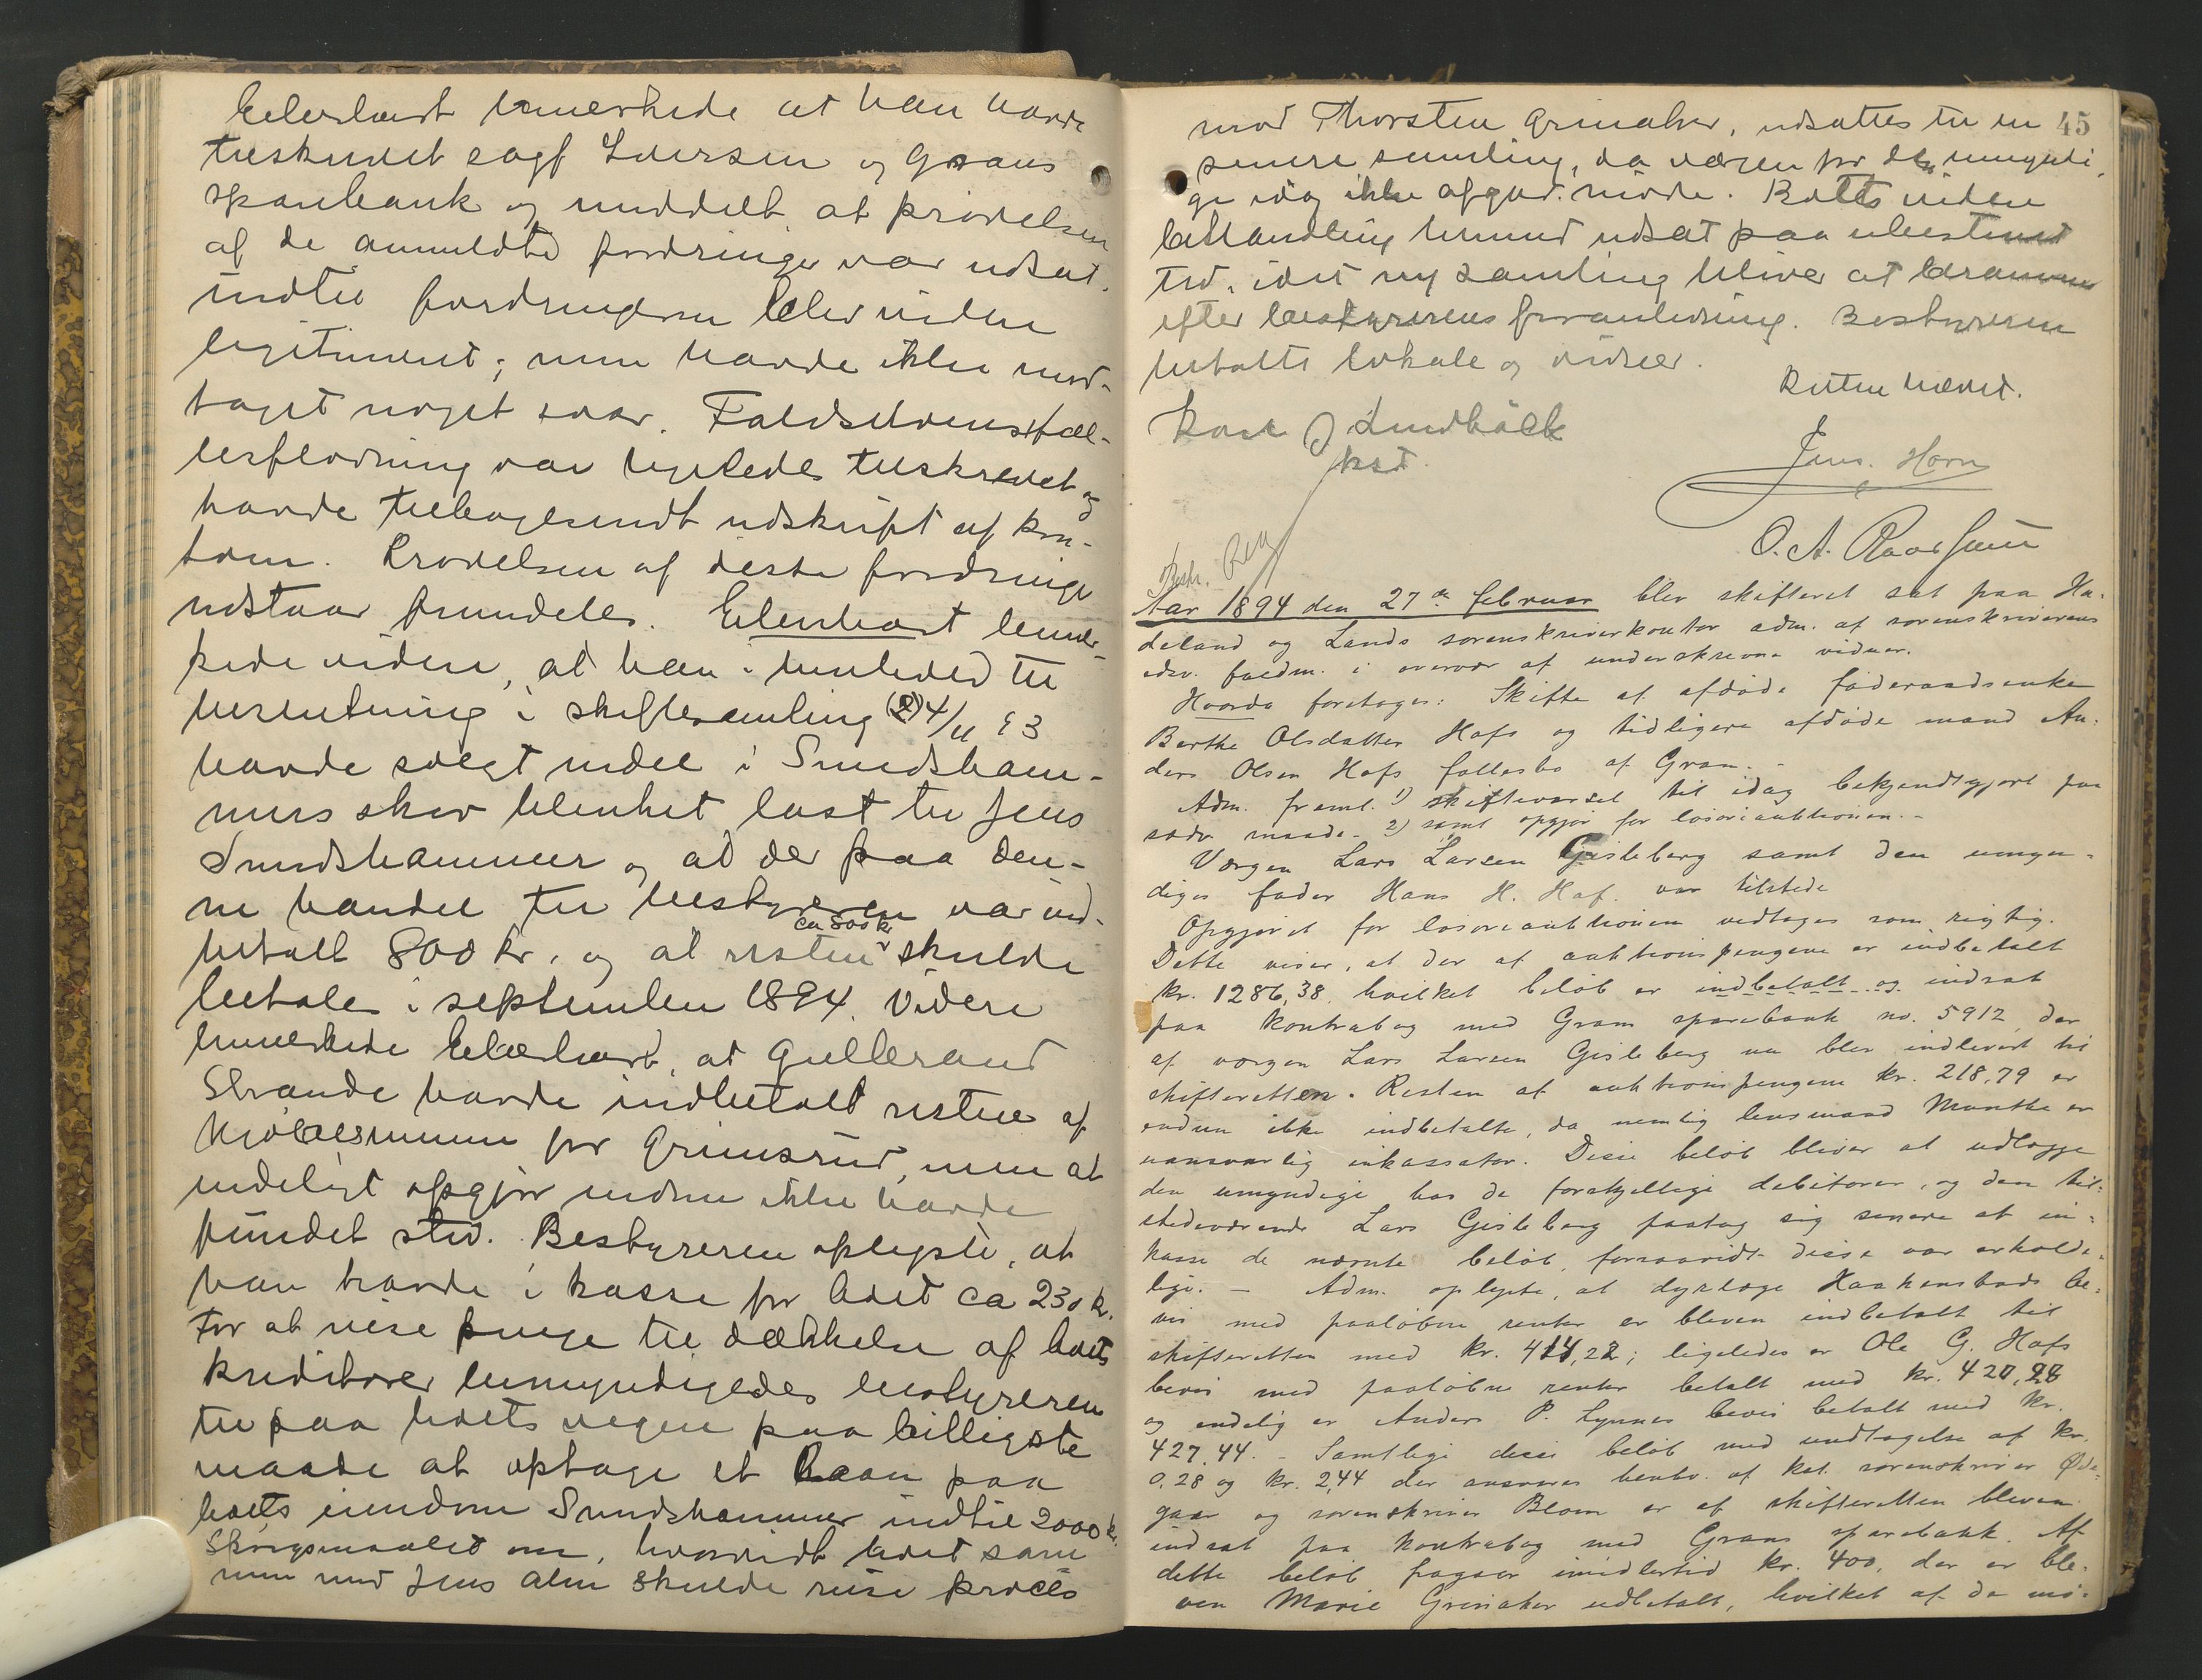 bemerkede at han havde
tilskrevet sagf Iversen og Grans
sparebank og meddelt at prøvelsen
af de anmeldte fordringer var udsat
indtil fordringerne blev videre
legitimeret; men havde ikke mod-
taget noget svar. Faldselvens fæl-
lesflødning var ligeledes tilskrevet og
havde tilbagesendt udskrift af kon-
toen. Prøvelsen af disse fordringer
udstaar fremdeles. bemær-
kede videre, at han i henhold til
beretning i skiftesamling 24/11 93
havde solgt endel i Smedsham-
mers skov blinket last til Jens
Smedshammer og at der paa den-
ne handel til bestyreren var ind-
ca 800 kr
betalt 800 kr. og at resten skulde
betales i september 1894. Videre
bemerkede at Gulleraud
Strande havde indbetalt resten af
kjøbesummen for Grimsrud, men at
endeligt opgjør endnu ikke havde
fundet sted. Bestyreren oplyste, at
han havde i kasse for boet ca 230 kr.
For at reise penge til dækkelse af boets
kreditorer bemyndigedes bestyreren
til paa boets vegne paa billigste
maade at optage et laan paa
boets eiendom Smedshammer indtil 2000 kr.
Spørgsmaalet om, hvorvidt boet sam-
men med Jens Alm skulde reise proces
45
mod Thorsten Grinaker, udsattes til en
senere samling, da værgen for de umyndi-
ge idag ikke afgav møde. Boets videre
behandling herved udsat paa ubestemt
tid, idet ny samling bliver at beramme
efter bestyrerens foranledning. Bestyreren
betalte lokale og vidner.
Retten hævet.
Lundbäck
kst.
Jens. Horn
O. A.
Aar 1894 den 27de februar blev skifteret sat paa Ha-
deland og Lands sorenskriverkontor adm. af sorenskriverens
edsv. fuldm. i overvær af underskrevne vidner.
Hvorda foretoges: Skifte af afdøde føderaadsenke
Berthe Olsdatter Hofs og tidligere afdøde mand An-
ders Olsen Hofs fællesbo af Gran. -
Adm. freml. 1) skiftevarsel til idag bekjendtgjort paa
sedv. maade - 2) samt opgjør for løsøreauktionen. -
Værgen Lars Larsen Gisleberg samt den umyn-
diges fader Hans H. Hof. var tilstede
Opgjøret for løsøreauktionen vedtoges som rigtig.
Dette viser, at der af auktionspengene er indbetalt
kr. 1286,38, hvilket beløb er indbetalt og indsat
paa kontrabog med Grans sparebank no. 5912, der
af værgen Lars Larsen Gisleberg nu blev indlevert til
skifteretten. Resten af auktionspengene kr. 218,79 er
endnu ikke indbetalte, da nemlig lensmand Munthe er
uansvarlig inkassator. Disse beløb bliver at udlægge
den umyndige hos de forskjellige debitorer, og den til-
stedeværende Lars Gisleberg paatog sig senere at in-
kasse de nævnte beløb, forsaavidt disse var erholde-
lige. - Adm. oplyste, at dyrlæge Haakenstads be-
vis med paaløbne renter er bleven indbetalt til
skifteretten med kr. 414,22; ligeledes er Ole G. Hofs
bevis med paaløbne renter betalt med kr. 420,28
og endelig er Anders P. Lynnes bevis betalt med kr.
427,44. - Samtlige disse beløb med undtagelse af kr.
0,28 og kr. 2,44 der ansvares henhv. af kst. sorenskriver Øde-
gaar og sorenskriver Blom er af skifteretten bleven
indsat paa kontrabog med Grans sparebank. Af
dette beløb fragaar imidlertid kr. 400, der er ble-
ven Marie Grinaker udbetalt, hvilket af de mø-